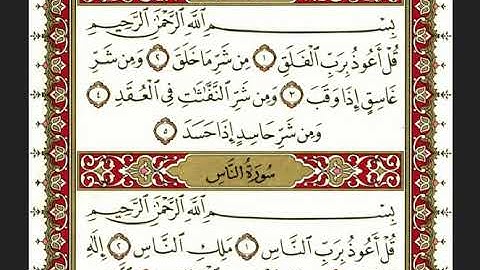 بِسْمِ ٱللَّهِ ٱلرَّحْمَٰنِ ٱلرَّحِيمِ
قُلْ أَعُوذُ بِرَبِّ ٱلْفَلَقِ ١ مِن شَرِّ مَا خَلَقَ ٢ وَمِن شَرِّ
غَاسِقٍ إِذَا وَقَبَ ٣ وَمِن شَرِّ ٱلنَّفَّٰثَٰتِ فِى ٱلْعُقَدِ ٤
وَمِن شَرِّ حَاسِدٍ إِذَا حَسَدَ ٥
سُورَةُ النَّاسِ
بِسْمِ ٱللَّهِ ٱلرَّحْمَٰنِ ٱلرَّحِيمِ
قُلْ أَعُوذُ بِرَبِّ ٱلنَّاسِ ١ مَلِكِ ٱلنَّاسِ ٢ إِلَٰهِ